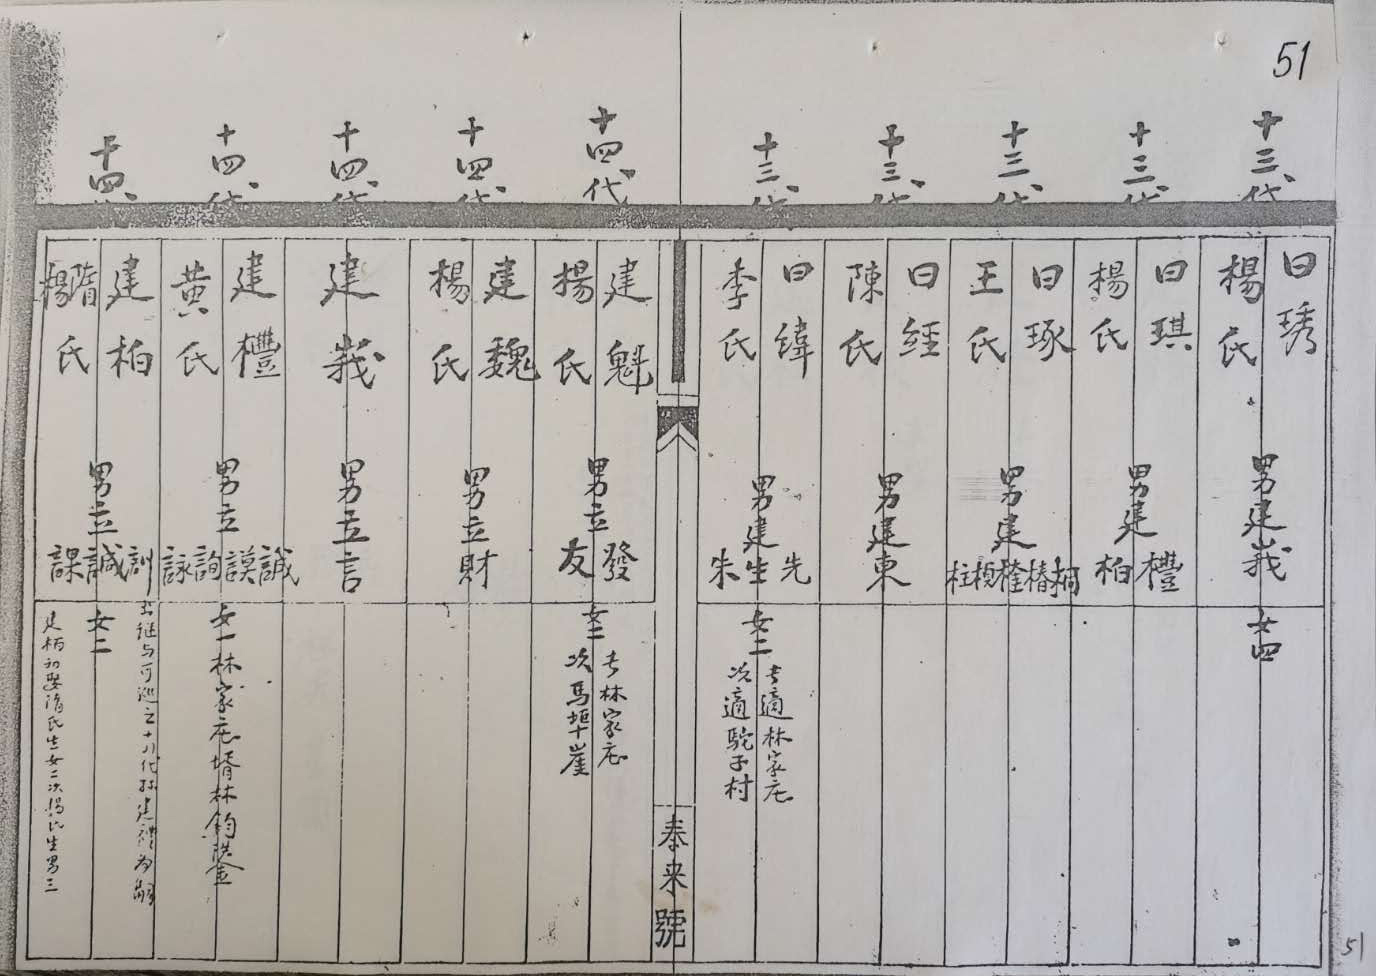 51
十三代
曰琇
楊氏
男建峩
女四
十三代
曰琪
楊氏
男建
檀
柏
十三代
曰琢
王氏
男建
桐椿檉楨柱
十三代
曰經
陳氏
男建東
十三代
曰緯
李氏
男建
先
生
朱
女二
長適林家庄
次適駝子村
泰来號
十四代
建魁
楊氏
男立
發
友
女二
長林家庄
次馬埠崖
十四代
建魏
楊氏
男立財
十四代
建峩
男立言
十四代
建檀
黄氏
男立
誠謨詢詠
女一林家庄壻林鈞
十四代
建柏
隋
楊
氏
男立
訓
誠
課
出继与可巡之十八代孙建禮为嗣
女二
建柏初娶隋氏生女二次楊氏生男三
51